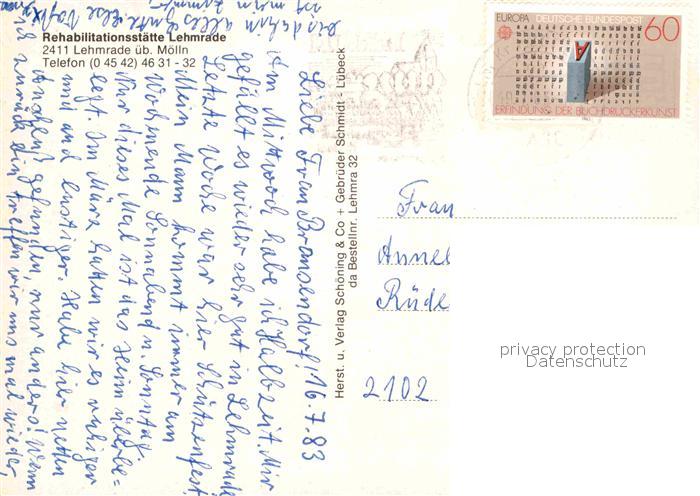 Rehabilitationsstätte Lehmrade
2411 Lehmrade üb. Mölln
Telefon (0 45 42) 46 31 - 32
EUROPA DEUTSCHE BUNDESPOST 60
ERFINDUNG DER BUCHDRUCKERKUNST
Herst. u. Verlag Schöning & Co + Gebrüder Schmidt - Lübeck
da Bestellnr. Lehmra 32
16.7.83
Liebe Frau Bransendorf!
Am Mittwoch habe ich Halbzeit. Mir
gefällt es wieder sehr gut in Lehmrade
Letzte Woche war hier Schützenfest.
Mein Mann kommt immer am
Wochenende Sonnabend u. Sonntag.
Nur dieses Mal ist das Heim überbe-
legt. Im März hatten wir es ruhiger
und auch lustiger. Habe hier netten
Anschluß gefunden, nur anders! Wenn
ich zurück bin treffen wir uns mal wieder,
bis dahin alles Gute
Frau
Annel
Rüde
2102
privacy protection
Datenschutz